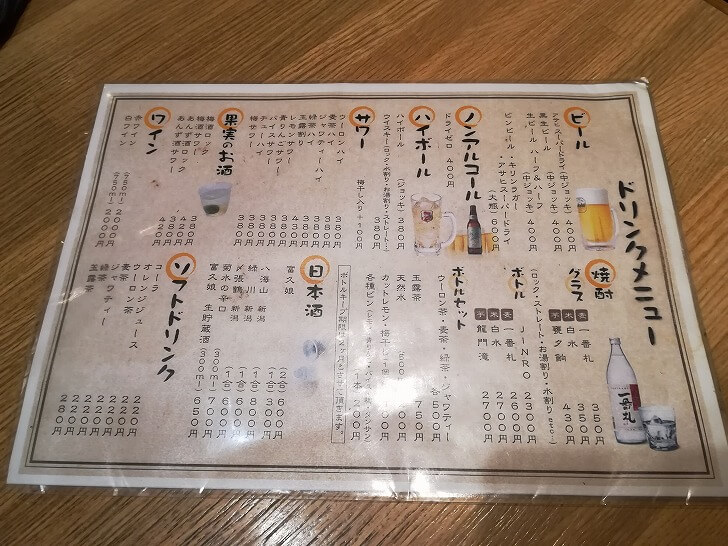 ドリンクメニュー
ビール
アサヒスーパードライ(中ジョッキ) 400円
黒生ビール (中ジョッキ) 400円
生ビール ハーフ&ハーフ (中ジョッキ) 400円
ビンビール・キリンラガー・アサヒスーパードライ
(大瓶) 600円
ノンアルコール
ドライゼロ 400円
ハイボール
ハイボール (ジョッキ) 380円
ウイスキー(ロック・水割り・お湯割り・ストレート・・・)
380円
サワー
梅干し入り +100円
ウーロンハイ 380円
麦茶ハイ 380円
ジャワティーハイ 380円
緑茶ハイ 380円
玉露割り
レモンサワー 380円
青りんごサワー 380円
バイスサワー 380円
チューハイ 380円
梅サワー 380円
果実のお酒
梅酒ロック 380円
梅酒サワー
あんず酒ロック
あんず酒サワー
ワイン
赤ワイン (750ml) 2000円
白ワイン (750ml) 2000円
焼酎
グラス
麦 一番札 350円
米 白水 350円
芋 甕夕鉤 430円
(ロック・ストレート・お湯割り・水割りetc…)
ボトル
JINRO 2300円
麦 一番札 2600円
米 白水 2700円
芋 龍門滝 2700円
ボトルセット
ウーロン茶・麦茶・緑茶・ジャワティー
各500円
玉露茶 750円
天然水
カットレモン・梅干し
各種ビン 1本 200円
ボトルキープ期限は2ヶ月とさせて頂きます。
日本酒
富久娘 (2合) 600円
八海山 新潟 (1合)
緑川 新潟 (1合) 800円
〆張鶴 新潟 (1合) 600円
菊水の辛口 (1合) 600円
富久娘 生貯蔵酒 (300ml) 700円
ソフトドリンク
コーラ 220円
オレンジジュース 220円
ウーロン茶 220円
麦茶 220円
緑茶 220円
ジャワティー 220円
玉露茶 280円
一番札